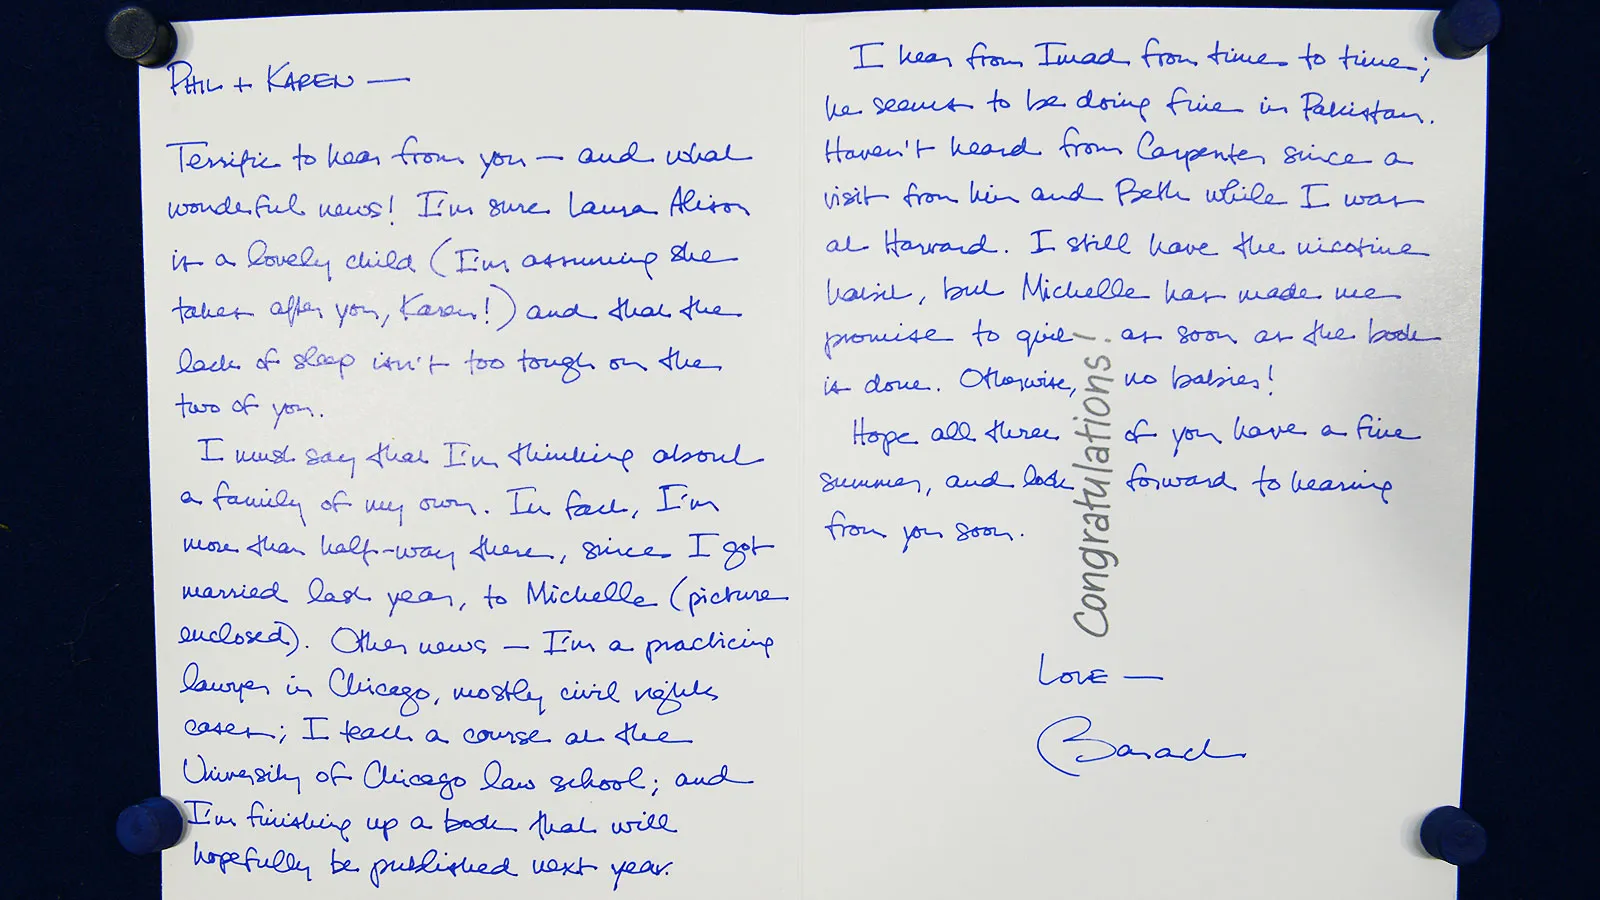 PHIL + KAREN —
Terrific to hear from you — and what
wonderful news! I'm sure Laura Alison
is a lovely child (I'm assuming she
takes after you, Karen!) and that the
lack of sleep isn't too tough on the
two of you.
I must say that I'm thinking about
a family of my own. In fact, I'm
more than half-way there, since I got
married last year, to Michelle (picture
enclosed). Other news — I'm a practicing
lawyer in Chicago, mostly civil rights
cases; I teach a course at the
University of Chicago law school; and
I'm finishing up a book that will
hopefully be published next year.
I hear from Imad from time to time;
he seems to be doing fine in Pakistan.
Haven't heard from Carpenter since a
visit from him and Beth while I was
at Harvard. I still have the nicotine
habit, but Michelle has made me
promise to quit as soon as the book
is done. Otherwise, no babies!
Hope all three of you have a fine
summer, and look forward to hearing
from you soon.
Congratulations!
LOVE —
Barack